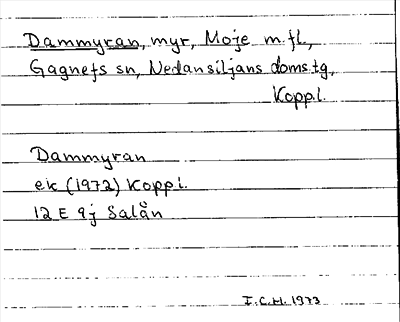 Dammyran, myr, Moje m.fl.,
Gagnefs sn, Nedansiljans doms.tg,
Koppl.
Dammyran
ek (1972) Koppl.
12 E 9j Salån
I.C.H. 1973